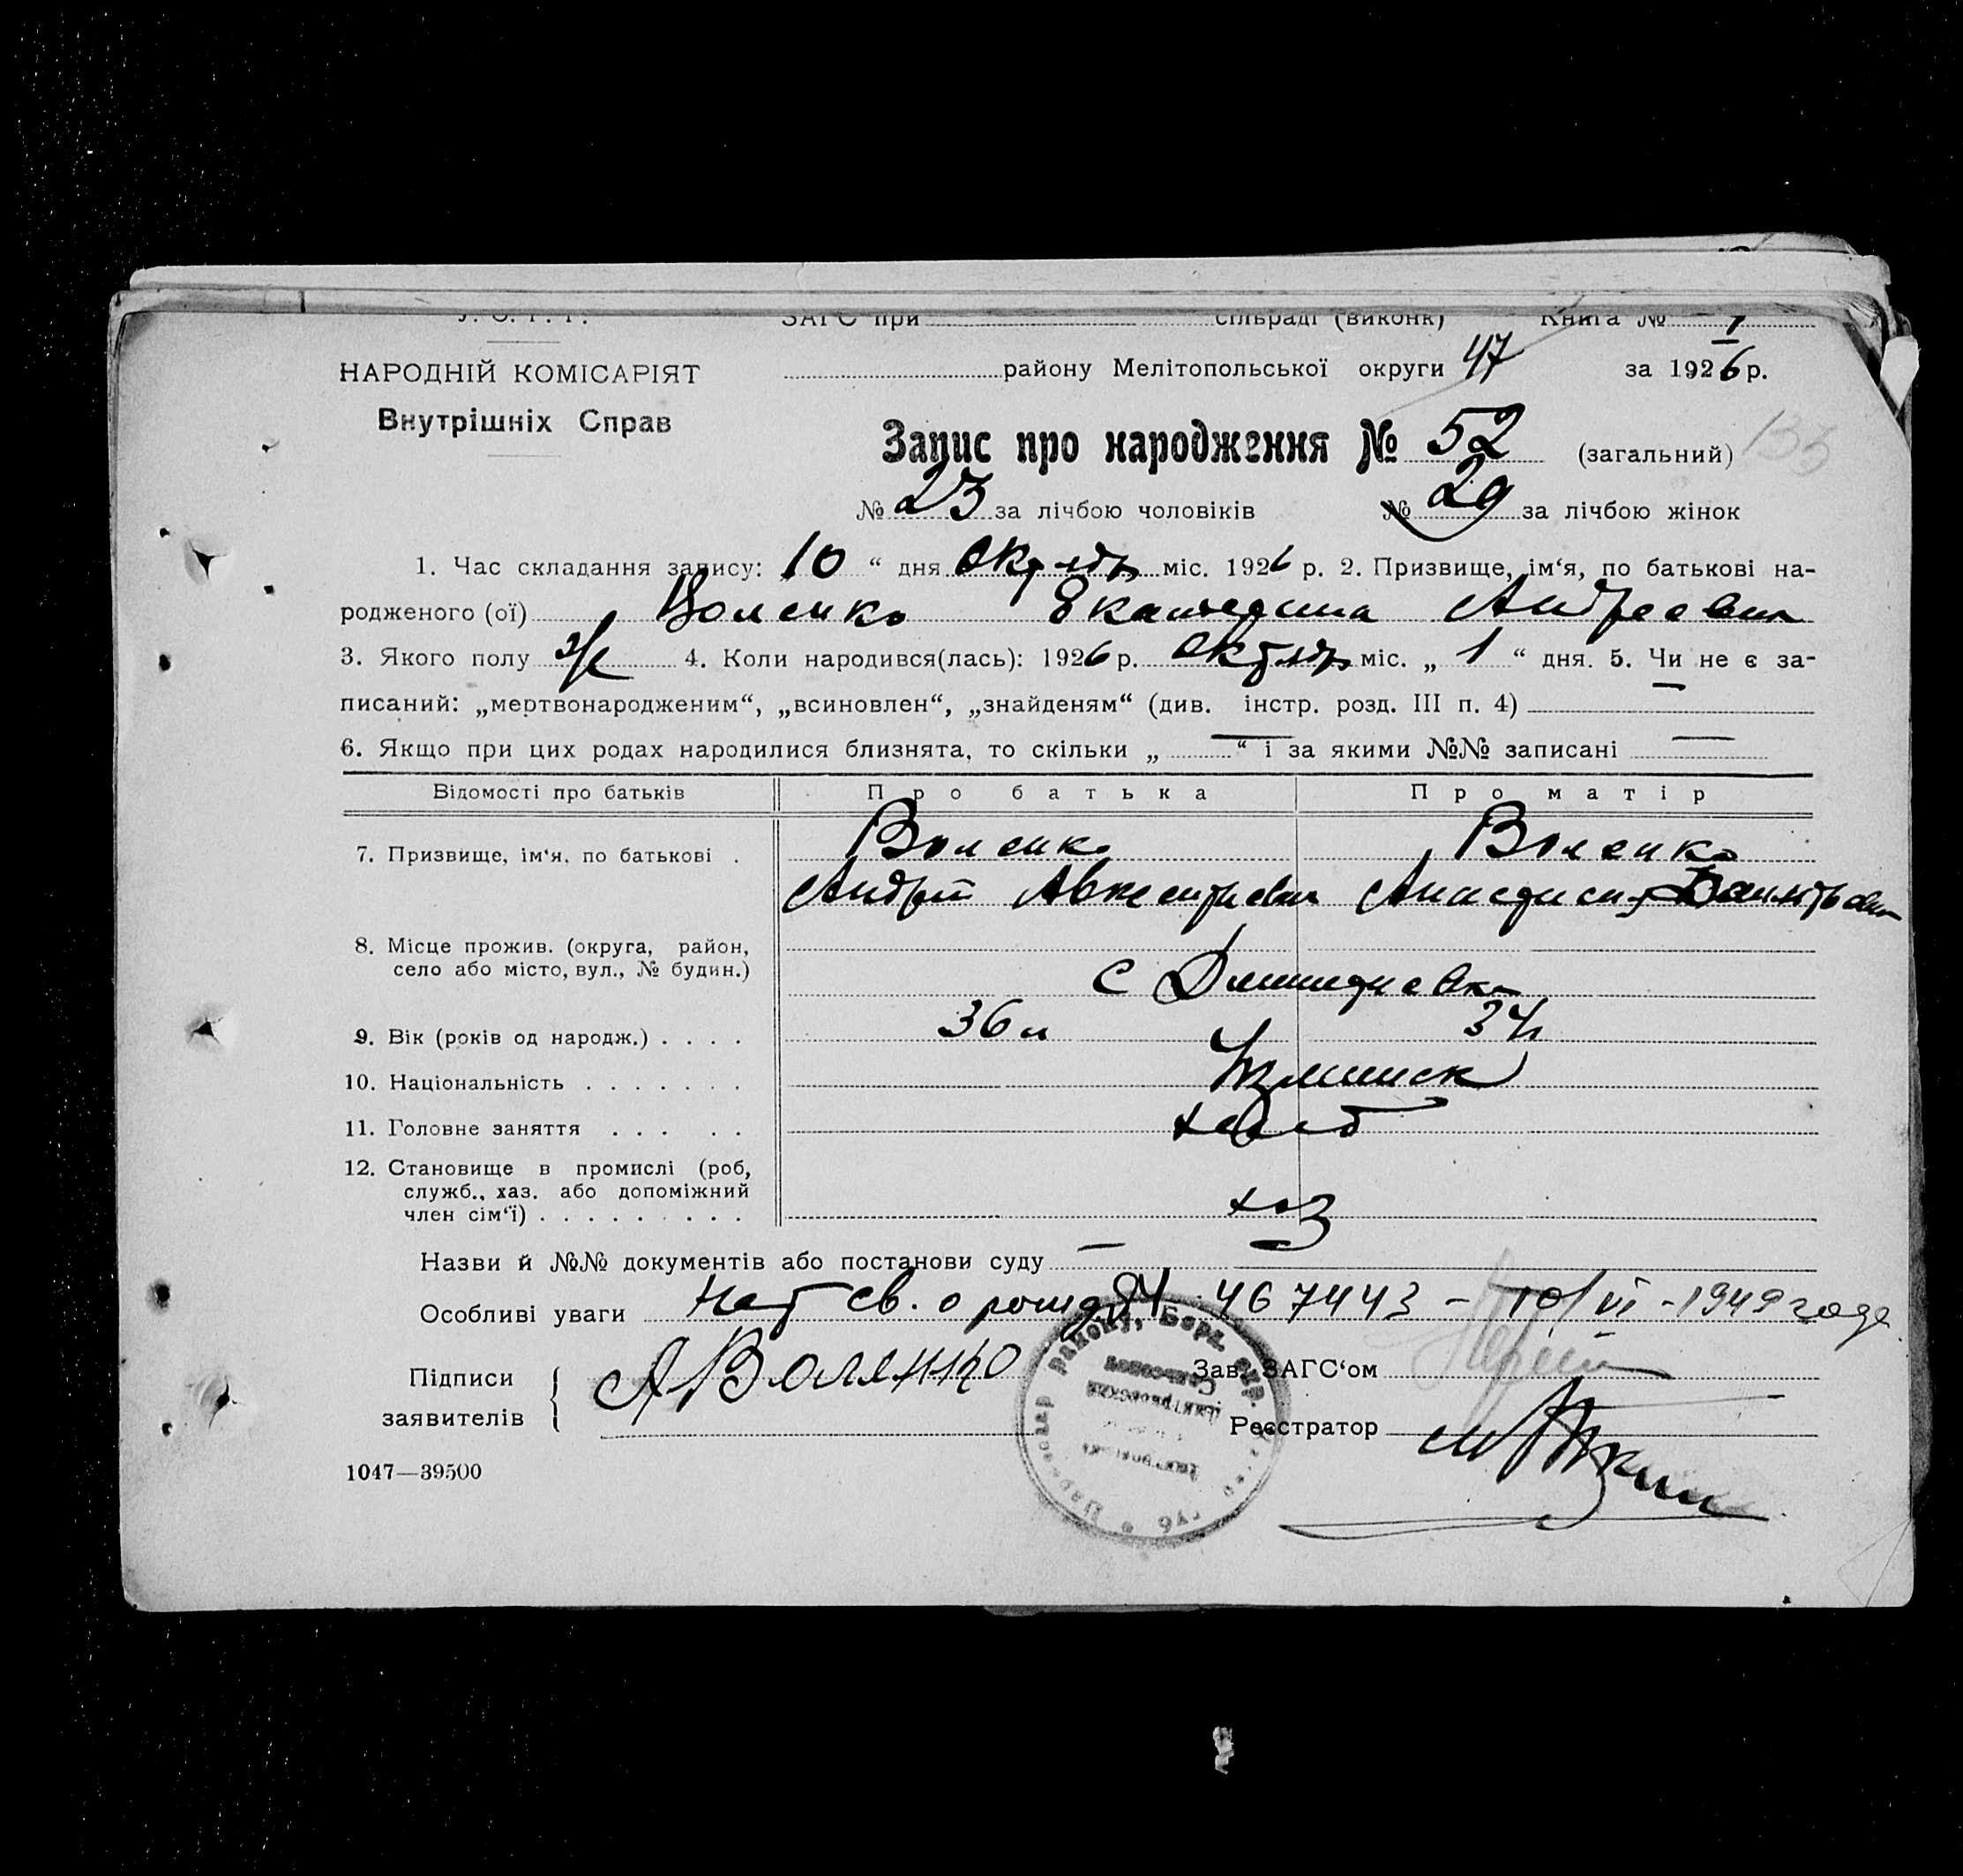 У. С. Р. Р. ЗАГС при сільраді (виконк) Книга № 1
НАРОДНІЙ КОМІСАРІЯТ району Мелітопольської округи 47 за 1926 р.
Внутрішніх Справ
Запис про народження № 52 (загальний) 133
№ 23 за лічбою чоловіків № 29 за лічбою жінок
1. Час складання запису: 10 “ дня міс. 1926 р. 2. Призвище, ім‘я, по батькові на-
родженого (ої) Воленко Екатерина Андреевн
3. Якого полу ж 4. Коли народився(лась): 1926 р. міс. „ 1 “ дня. 5. Чи не є за-
писаний: „мертвонародженим“, „всиновлен“, „знайденям“ (див. інстр. розд. III п. 4) —
6. Якщо при цих родах народилися близнята, то скільки „ — “ і за якими №№ записані —
Відомості про батьків Про батька Про матір
7. Призвище, ім‘я, по батькові . Воленко Воленко
Андрей
8. Місце прожив. (округа, район,
село або місто, вул., № будин.) с
9. Вік (років од народж.) . . . . 36 л 34
10. Національність . . . . . . .
11. Головне заняття . . . . . хлеб
12. Становище в промислі (роб,
служб., хаз. або допоміжний
член сім‘ї) . . . . . . . . . хоз
Назви й №№ документів або постанови суду —
Особливі уваги св. о рожд 467443 - 10/VI - 1949 года
Підписи Зав. ЗАГС‘ом
заявителів { АВоленко
Реєстратор
1047—39500